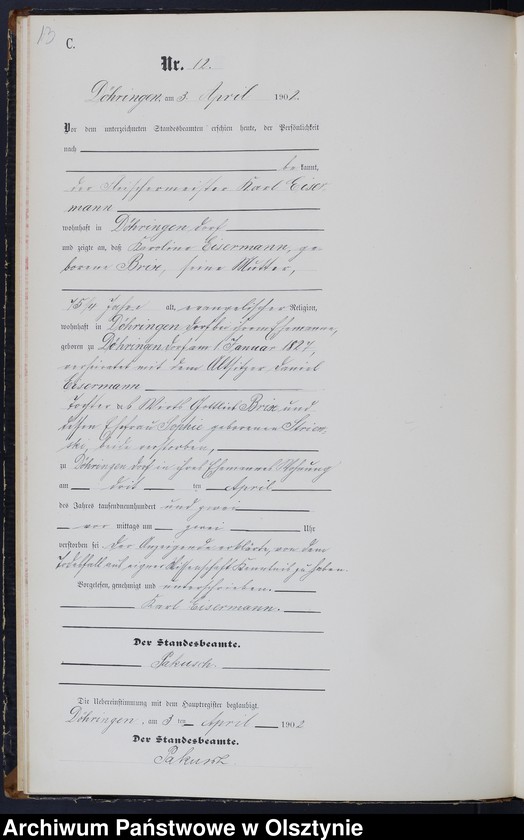 13
C.
Nr. 12.
Döhringen, am 3. April 1902.
Vor dem unterzeichneten Standesbeamten erschien heute, der Persönlichkeit
nach
be kannt,
der Karl Eiser
mann
wohnhaft in Döhringen Dorf
und zeigte an, daß Karoline Eisermann, ge
borene Brix, seine Mutter,
75 1/4 Jahre alt, evangelischer Religion,
wohnhaft in Döhringen Dorf bei ihrem Ehemanne,
geboren zu Döhringen Dorf am 1. Januar 1827,
verheiratet mit dem Altsitzer Daniel
Eisermann
Tochter des Wirths Gottlieb Brix und
dessen Ehefrau Sophie geborenen
beide verstorben,
zu Döhringen Dorf in ihres Ehemannes Wohnung
am drit ten April
des Jahres tausendneunhundert und zwei
vor mittags um zwei Uhr
verstorben sei. Der Anzeigende erklärte, von dem
Todesfall aus eigener Wissenschaft Kenntnis zu haben.
Vorgelesen, genehmigt und unterschrieben.
Karl Eisermann.
Der Standesbeamte.
Pakusch.
Die Uebereinstimmung mit dem Hauptregister beglaubigt.
Döhringen, am 3 ten April 1902
Der Standesbeamte.
Pakusch
Archiwum Państwowe w Olsztynie